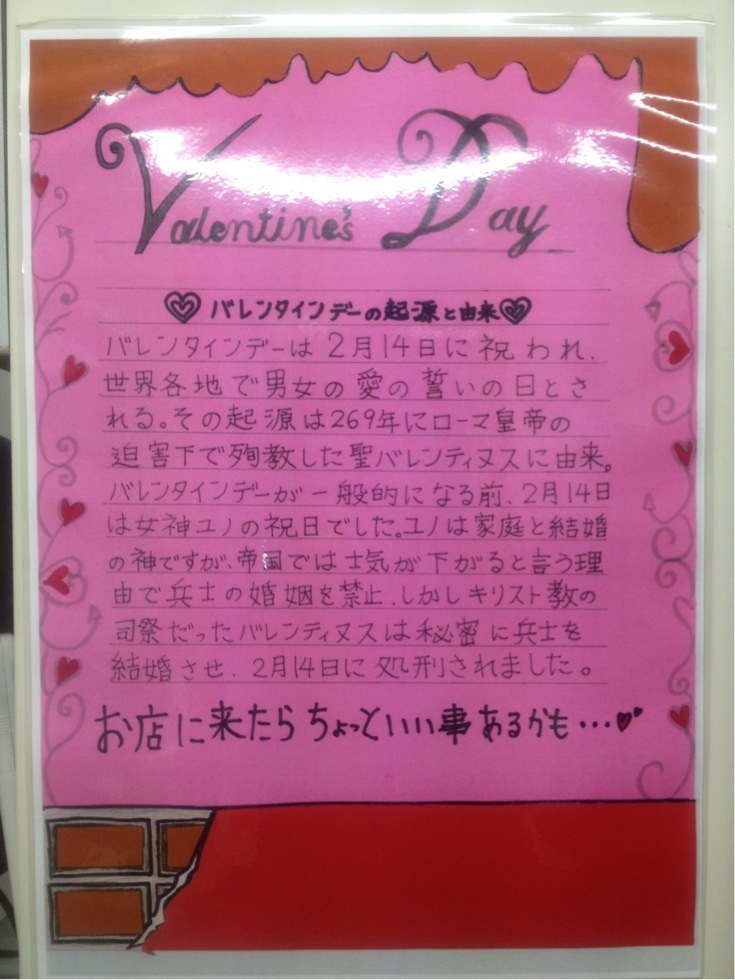 Valentine's Day
バレンタインデーの起源と由来
バレンタインデーは2月14日に祝われ、
世界各地で男女の愛の誓いの日とさ
れる。その起源は269年にローマ皇帝の
迫害下で殉教した聖バレンティヌスに由来。
バレンタインデーが一般的になる前、2月14日
は女神ユノの祝日でした。ユノは家庭と結婚
の神ですが、帝国では士気が下がると言う理
由で兵士の婚姻を禁止、しかしキリスト教の
司祭だったバレンティヌスは秘密に兵士を
結婚させ、2月14日に処刑されました。
お店に来たらちょっといい事あるかも・・・